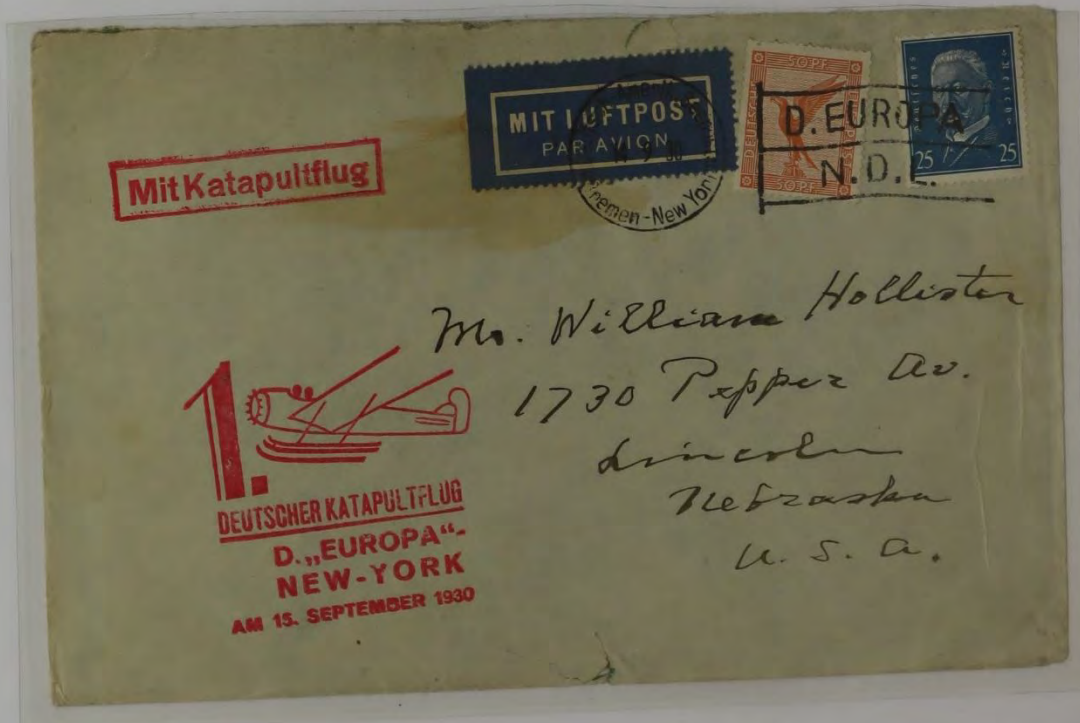 Mit Katapultflug
MIT LUFTPOST
PAR AVION
Bremen-New York
50PF
DEUTSCHE
50PF
D. EUROPA
N.D.L.
25
25
Mr. William Hollister
1730 Pepper Av.
Lincoln
Nebraska
U. S. A.
1.
DEUTSCHER KATAPULTFLUG
D. „EUROPA“-
NEW-YORK
AM 15. SEPTEMBER 1930